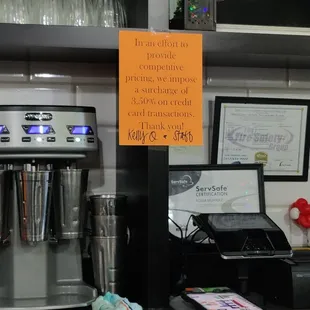 In an effort to
provide
competitive
pricing, we impose
a surcharge of
3.50% on credit
card transactions.
Thank you!
Kelly O & Staff
ServSafe
CERTIFICATION
ServSafe